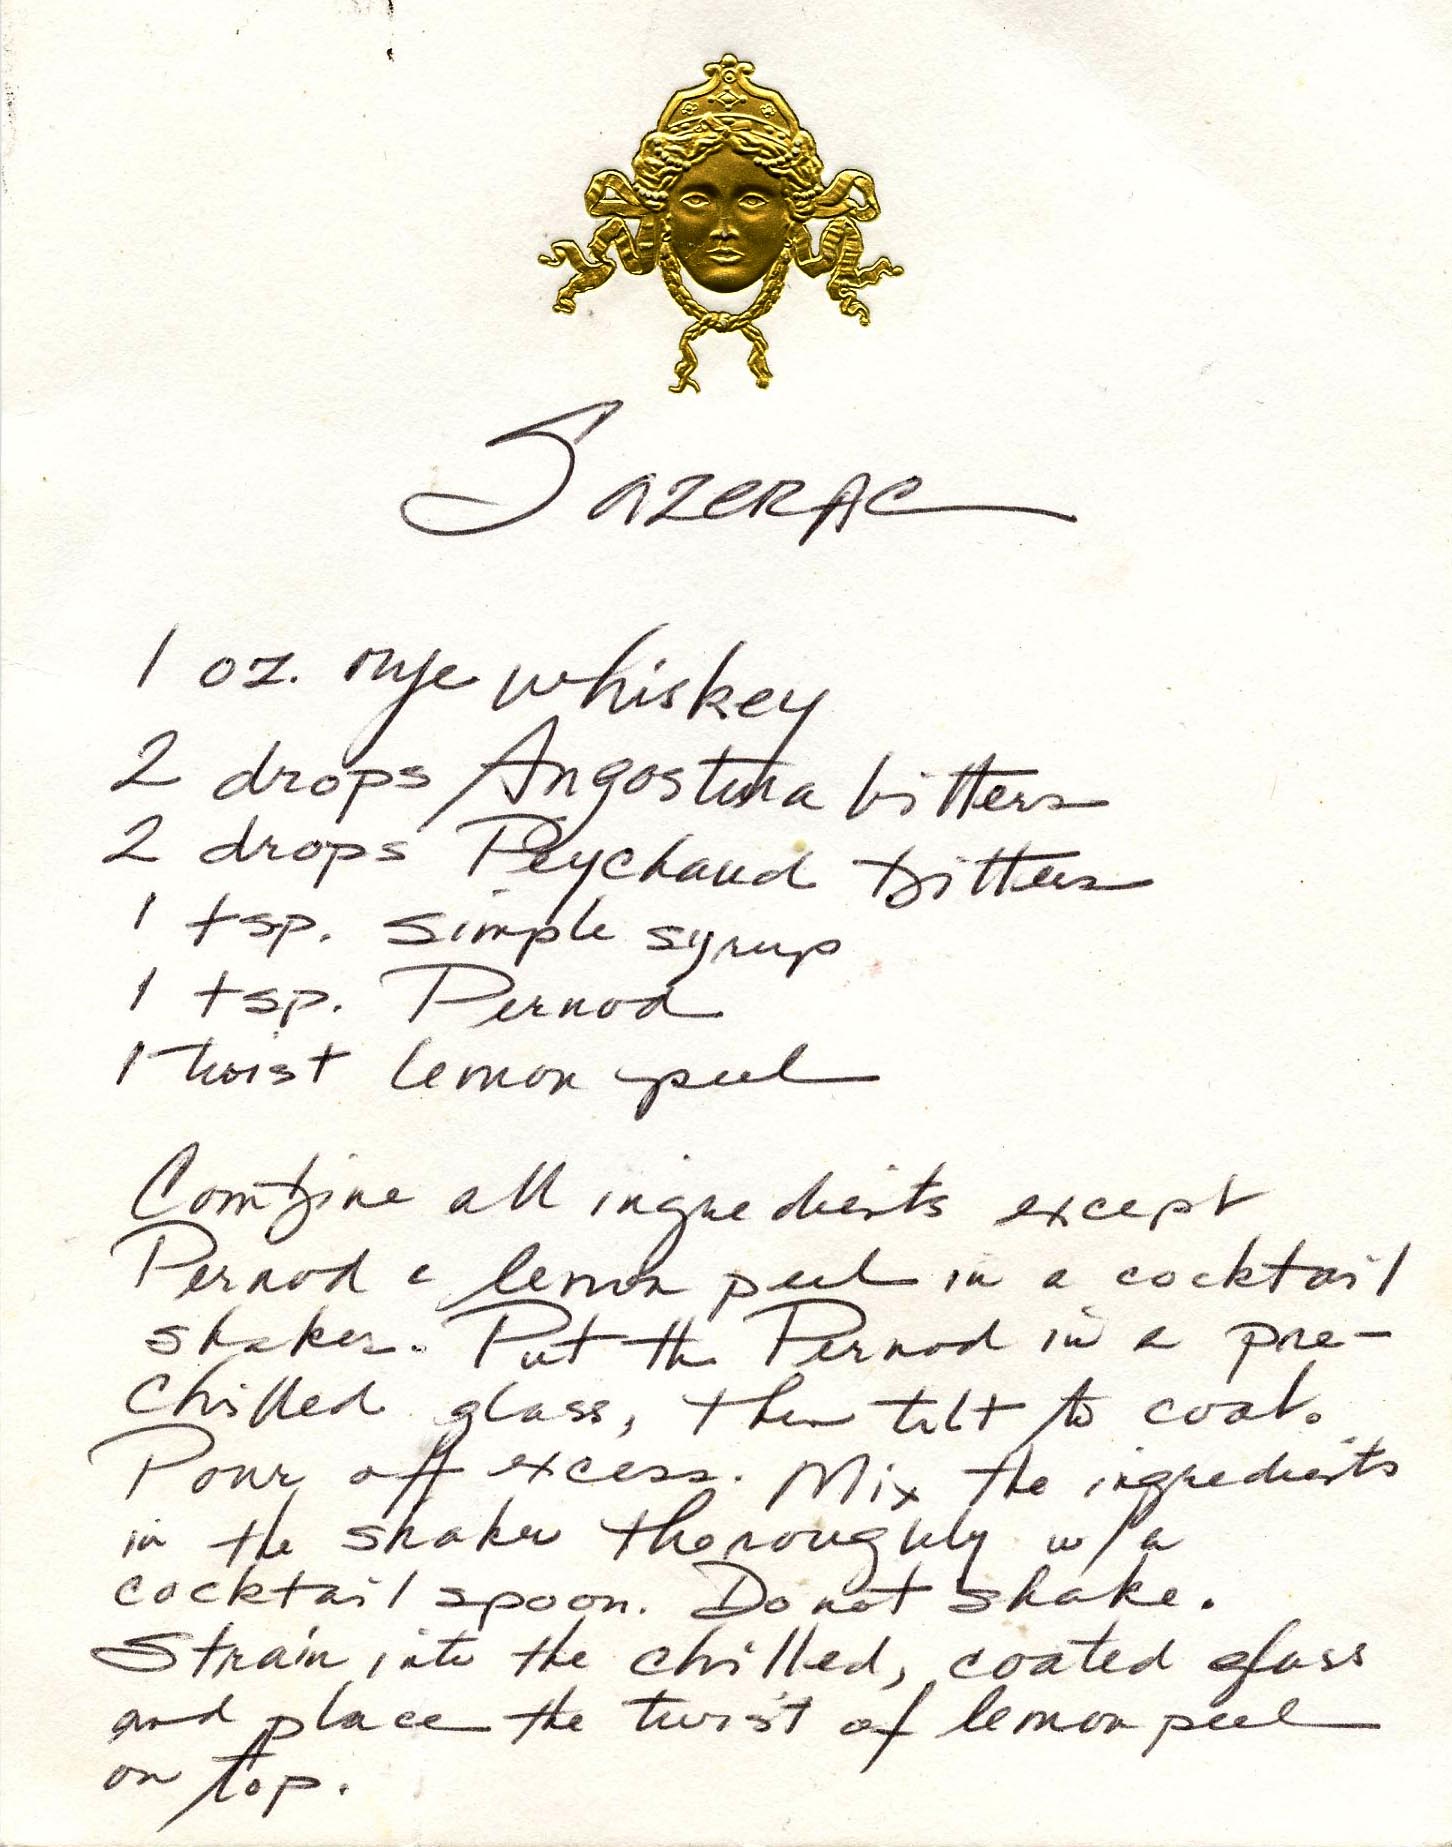 Sazerac
1 oz. rye whiskey
2 drops Angostura bitters
2 drops Peychaud bitters
1 tsp. simple syrup
1 tsp. Pernod
1 twist lemon peel
Combine all ingredients except
Pernod & lemon peel in a cocktail
shaker. Put the Pernod in a pre-
chilled glass, then tilt to coat.
Pour off excess. Mix the ingredients
in the shaker thoroughly w/a
cocktail spoon. Do not shake.
Strain into the chilled, coated glass
and place the twist of lemon peel
on top.